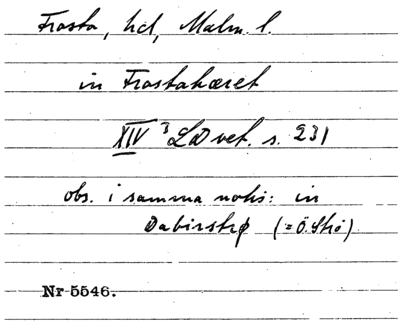 Frosta, hd, Malm. l.
in Frostahæret
XIV ³ LD vet. s. 231
obs. i samma notis: in
Dabirstrø (= Ö. Strö)
Nr 5546.